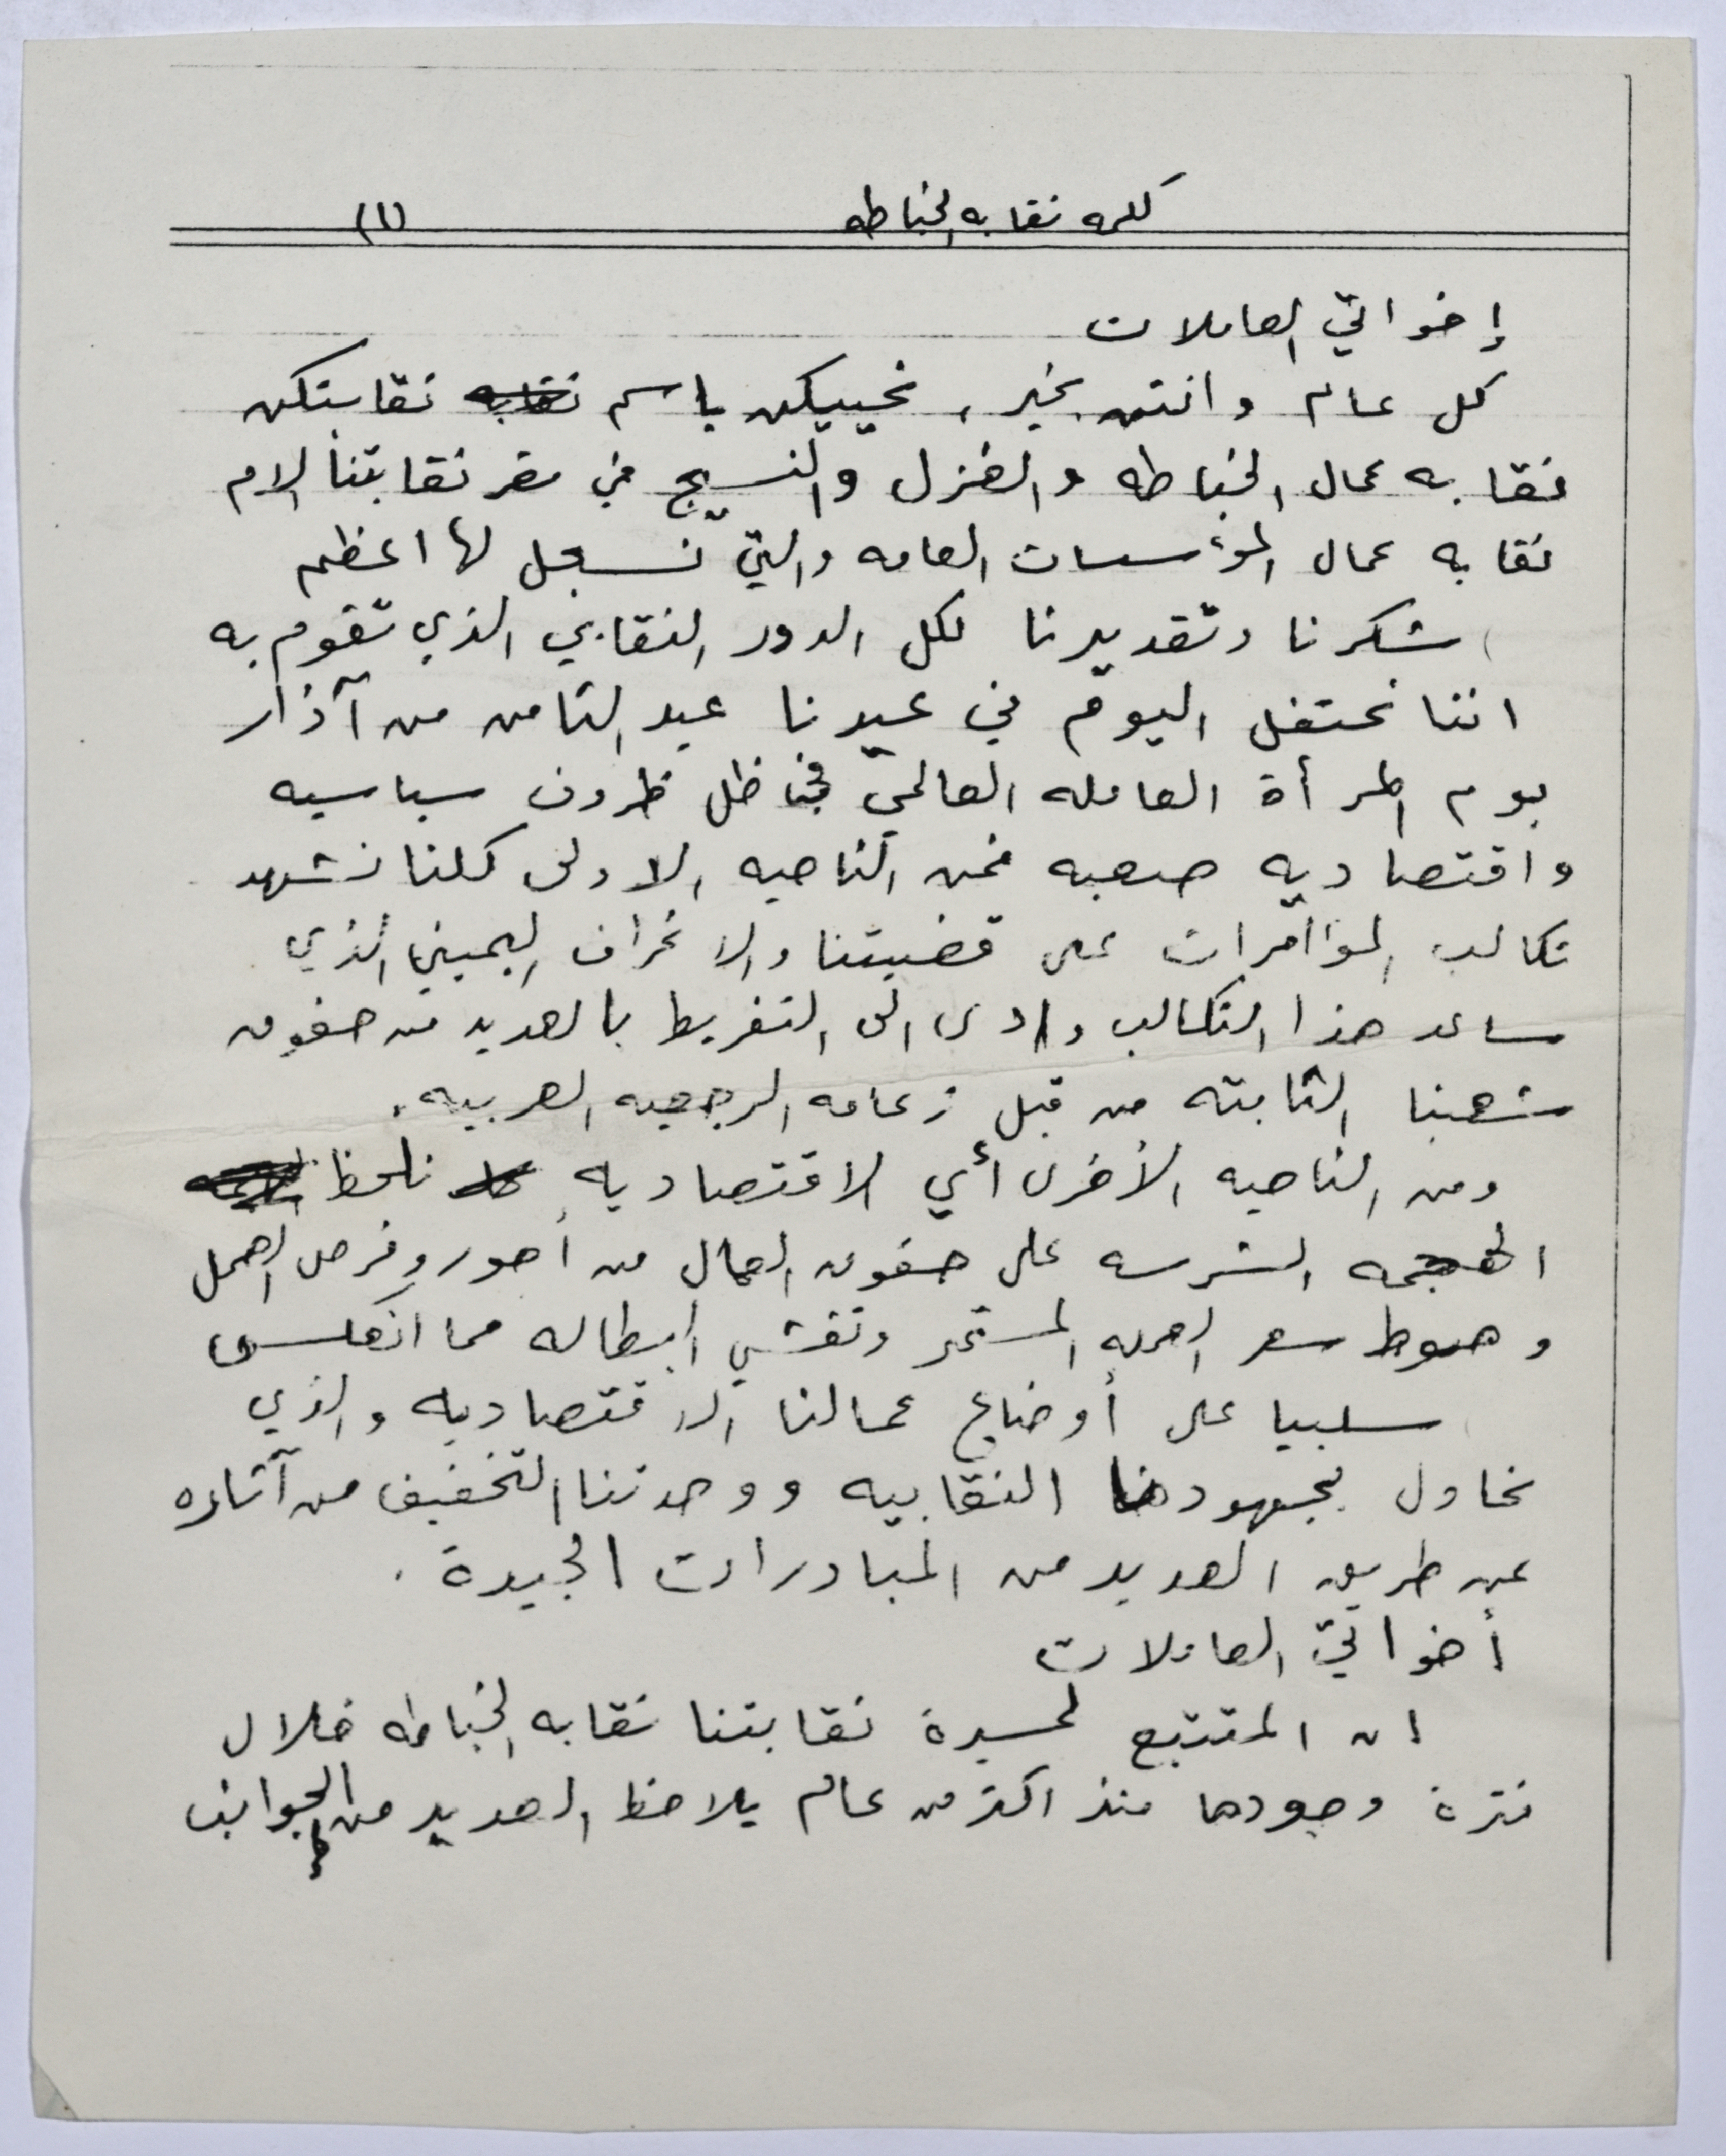 كلمه نقابه الخياطه (١)
إخواتي العاملات
كل عام وانتن بخير، نحييكن باسم نقابه نقابتكن
نقابه عمال الخياطه والغزل والنسيج في مقر نقابتنا الام
نقابه عمال المؤسسات العامه والتي نسجل لها اعظم
شكرنا وتقديرنا لكل الدور النقابي الذي تقوم به
اننا نحتفل اليوم في عيدنا عيد الثامن من آذار
يوم المرأة العامله العالمي في ظل ظروف سياسيه
واقتصاديه صعبه فمن الناحيه الاولى كلنا نشهد
تكالب المؤامرات على قضيتنا والانحراف اليميني الذي
ساعد هذا التكالب وادى الى التفريط بالعديد من حقوق
شعبنا الثابته من قبل زعامه الرجعيه العربيه.
ومن الناحيه الأخرى أي الاقتصاديه نلحظ
الهجمه الشرسه على حقوق العمال من أجور وفرص العمل
وهبوط سعر العمله المستمر وتفشي البطاله مما انعكس
سلبيا على أوضاع عمالنا الاقتصاديه والذي
نحاول بجهودنا النقابيه ووحدتنا التخفيف من آثاره
عن طريق العديد من المبادرات الجيدة.
أخواتي العاملات
ان المتتبع لمسيرة نقابتنا نقابه الخياطه خلال
فترة وجودها منذ اكثر من عام يلاحظ العديد من الجوانب